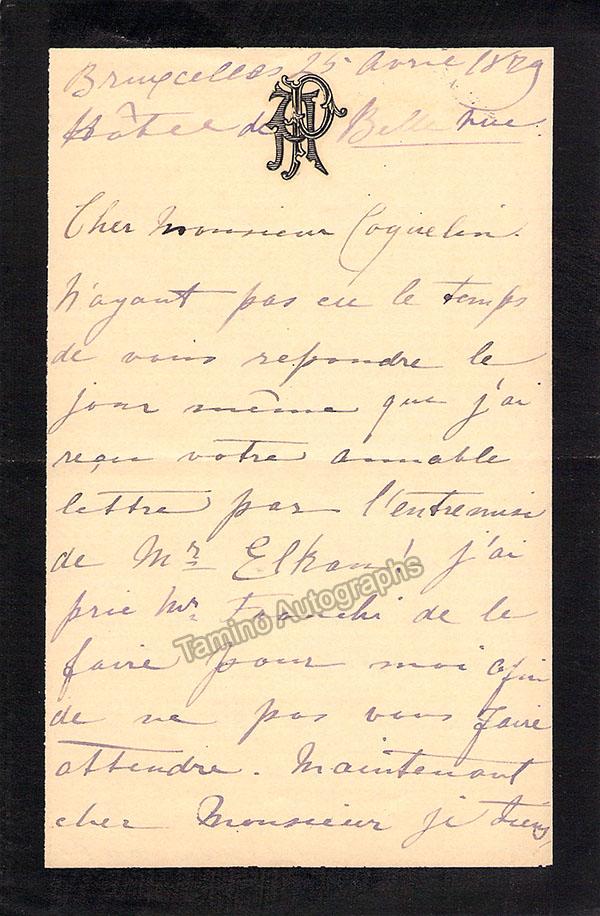 Bruxelles 25 Avril 1879
Hôtel de Belle Vue.
Cher Monsieur Coquelin.
N'ayant pas eu le temps
de vous repondre le
jour même que j'ai
reçu votre aimable
lettre par l'entremise
de Mr Elkan! j'ai
prié Mr. Franchi de le
faire pour moi afin
de ne pas vous faire
attendre. Maintenant
cher Monsieur je tiens,
Tamino Autographs